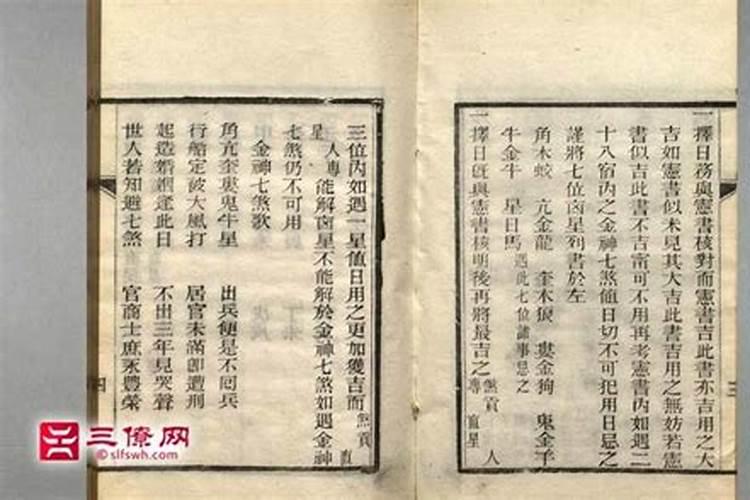 一擇日務與憲書核對而憲書吉此書亦吉用之大
吉如憲書似未見其大吉此書吉用之無妨若憲
書似吉此書不吉甯可不用再考憲書內如遇二
十八宿內之金神七煞值日切不可犯用日忌之
謹將七位凶星列書於左
角木蛟 亢金龍 奎木狼 婁金狗 鬼金羊
牛金牛 星日馬 遇此七位諸事忌之
一擇日旣與憲書核明後再將最吉之 煞貢 專 直星 人
三
三位內如遇一星值日用之更加獲吉而 煞貢 直
星 人專 能解凶星不能解於金神七煞如遇金神
七煞仍不可用
金神七煞歌
角亢奎婁鬼牛星 出兵便是不囘兵
行船定被大風打 居官未滿卽遭刑
起造婚姻逢此日 不出三年見哭聲
世人若知避七煞 官商士庶永豐榮
四
三僚网
©slfswh.com